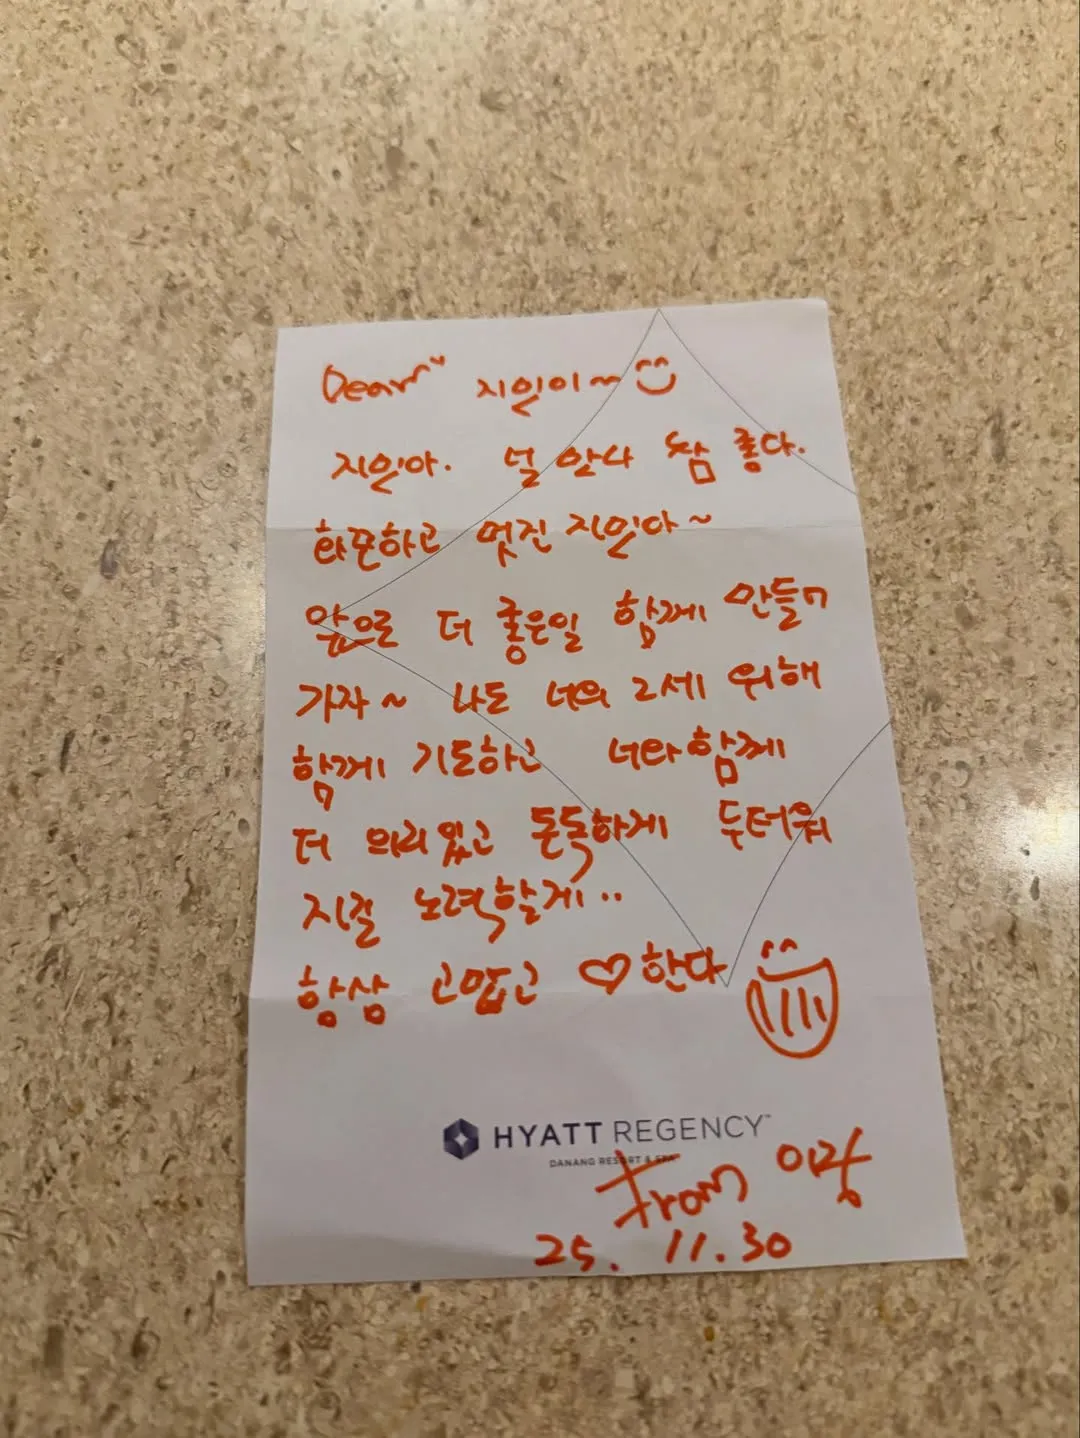 Dear~ 지인이~
지인아. 널 만나 참 좋다.
화끈하고 멋진 지인아~
앞으로 더 좋은일 함께 만들어
가자~ 나도 너의 2세 위해
함께 기도하고 너와함께
더 의리있고 돈독하게 두터워
지길 노력할게..
항상 고맙고 ♡한다
HYATT REGENCY™
DANANG RESORT & SPA
From
25. 11.30